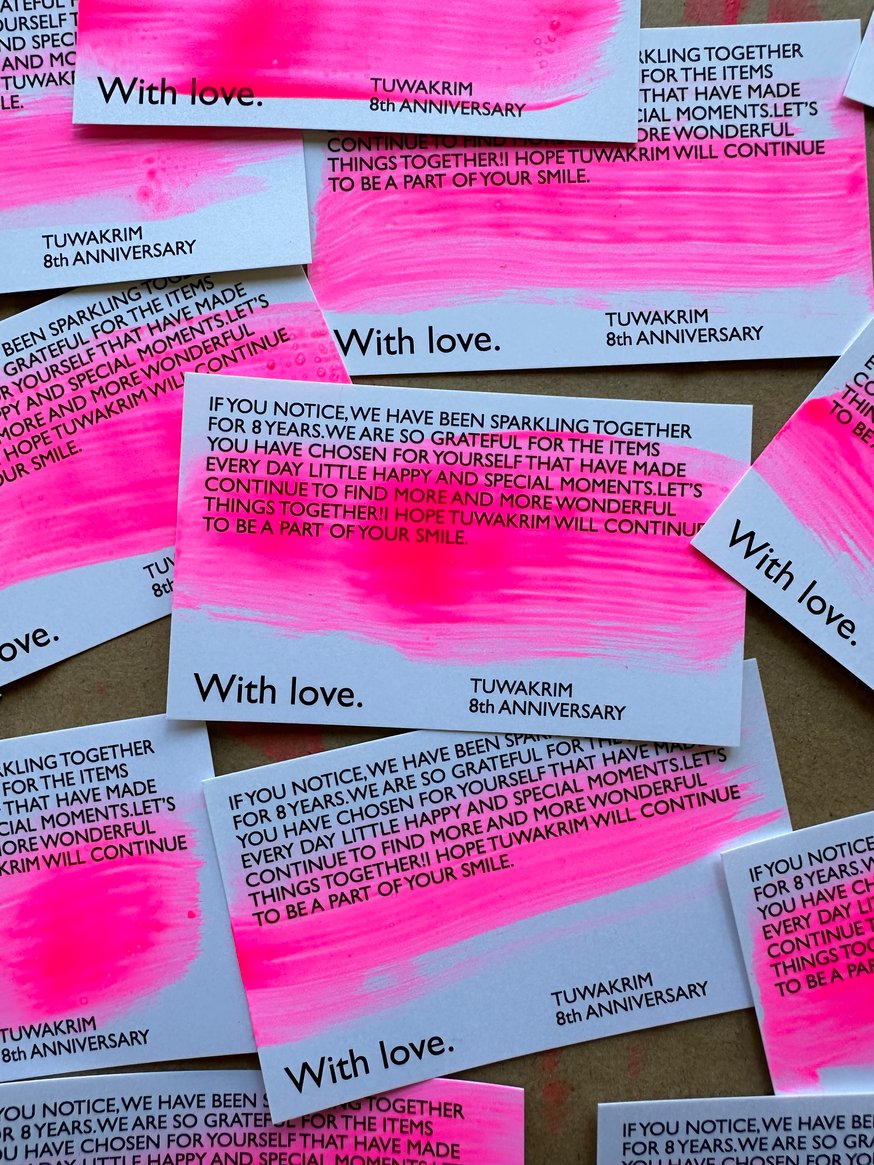 YOURSELF T
ND SPECI
AND MO
TUWAK
LE.
TUWAKRIM
8th ANNIVERSARY
With love.
TUWAKRIM
8th ANNIVERSARY
KLING TOGETHER
FOR THE ITEMS
THAT HAVE MADE
CIAL MOMENTS.LET'S
CONTINUE TO FIND MORE AND MORE WONDERFUL
THINGS TOGETHER!I HOPE TUWAKRIM WILL CONTINUE
TO BE A PART OF YOUR SMILE.
With love.
TUWAKRIM
8th ANNIVERSARY
BEEN SPARKLING TOGE
GRATEFUL FOR THE ITEMS
R YOURSELF THAT HAVE MADE
PPY AND SPECIAL MOMENTS.LET'S
MORE AND MORE WONDERFUL
HOPE TUWAKRIM WILL CONTINUE
OUR SMILE.
ove.
TU
8th
IF YOU NOTICE,WE HAVE BEEN SPARKLING TOGETHER
FOR 8 YEARS.WE ARE SO GRATEFUL FOR THE ITEMS
YOU HAVE CHOSEN FOR YOURSELF THAT HAVE MADE
EVERY DAY LITTLE HAPPY AND SPECIAL MOMENTS.LET'S
CONTINUE TO FIND MORE AND MORE WONDERFUL
THINGS TOGETHER!I HOPE TUWAKRIM WILL CONTINUE
TO BE A PART OF YOUR SMILE.
With love.
TUWAKRIM
8th ANNIVERSARY
TO BE
With love.
KLING TOGETHER
FOR THE ITEMS
THAT HAVE MADE
CIAL MOMENTS.LET'S
ORE WONDERFUL
KRIM WILL CONTINUE
TUWAKRIM
8th ANNIVERSARY
IF YOU NOTICE,WE HAVE BEEN SPAR
FOR 8 YEARS.WE ARE SO GRATEFUL FOR THE
YOU HAVE CHOSEN FOR YOURSELF THAT HAVE MADE
EVERY DAY LITTLE HAPPY AND SPECIAL MOMENTS.LET'S
CONTINUE TO FIND MORE AND MORE WONDERFUL
THINGS TOGETHER!I HOPE TUWAKRIM WILL CONTINUE
TO BE A PART OF YOUR SMILE.
With love.
TUWAKRIM
8th ANNIVERSARY
IF YOU NOTICE
FOR 8 YEARS.W
YOU HAVE CH
EVERY DAY LIT
CONTINUE T
THINGS TOG
TO BE A PAR
YOU NOTICE,WE HAVE BEEN S G TOGETHER
R 8 YEARS.WE ARE SO GRATEFUL FOR THE ITEMS
U HAVE CHOSEN FOR YOURSELF THAT HAVE MADE
DAY LITTLE HAPPY AND SPECIAL MOMENTS.LET'S
IF YOU NOTICE,WE HAVE BEE
FOR 8 YEARS.WE ARE SO GRA
YOU HAVE CHOSEN FOR YOU